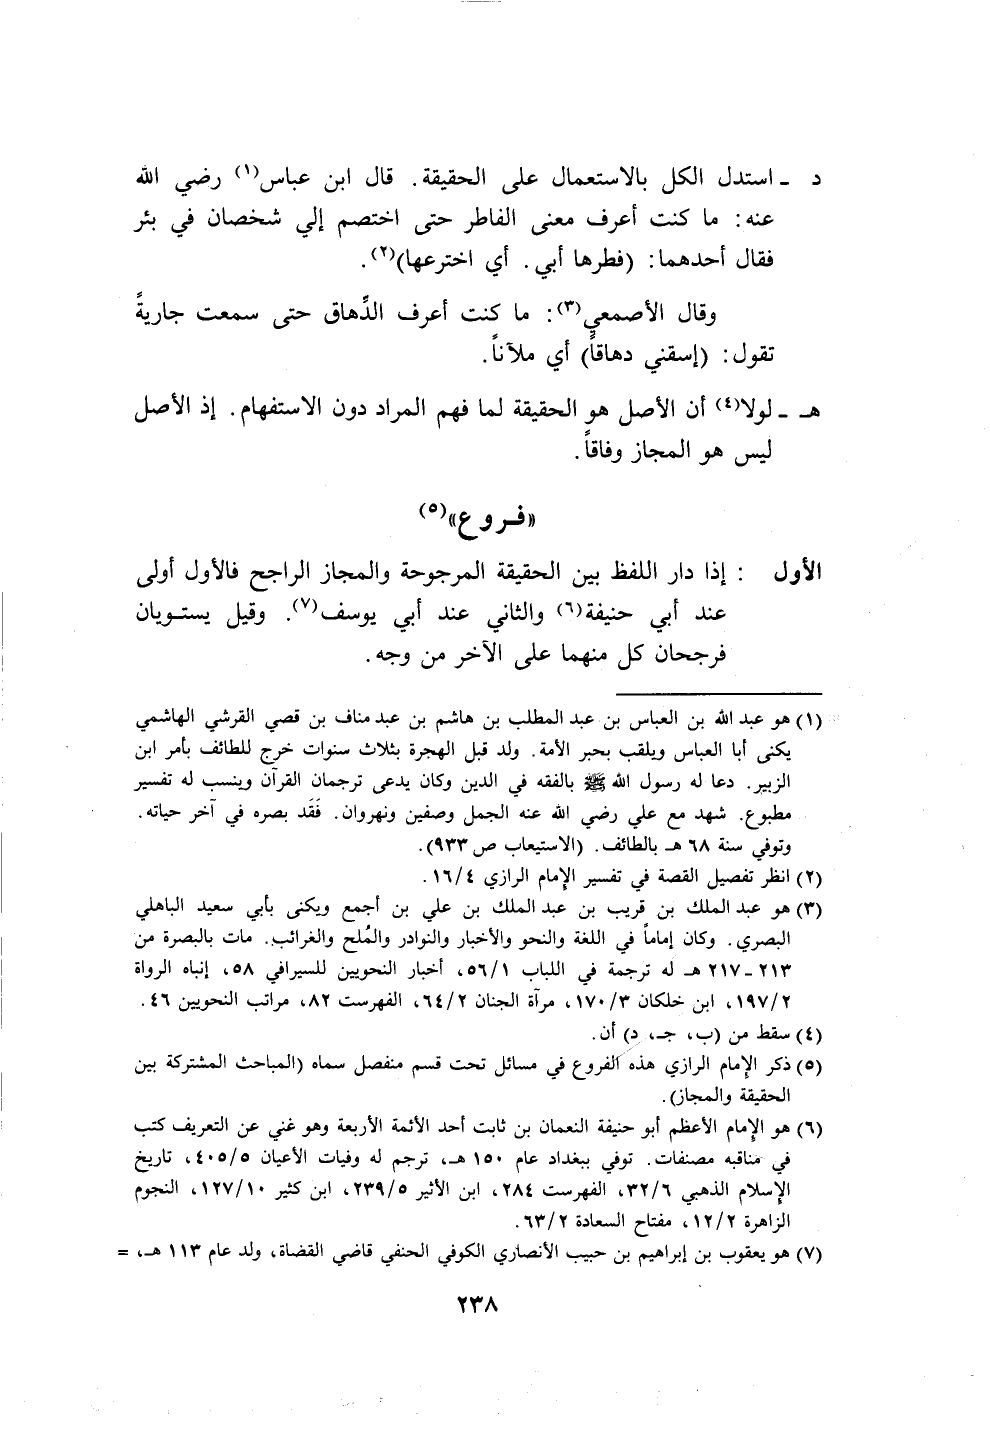 د ـ استدل الكل بالاستعمال على الحقيقة. قال ابن عباس(١) رضي الله
عنه: ما كنت أعرف معنى الفاطر حتى اختصم إلي شخصان في بئر
فقال أحدهما: (فطرها أبي. أي اخترعها)(٢).
وقال الأصمعي(٣): ما كنت أعرف الدِّهاق حتى سمعت جاريةً
تقول: (إسقني دهاقاً) أي ملآناً.
هـ ـ لولا(٤) أن الأصل هو الحقيقة لما فهم المراد دون الاستفهام. إذ الأصل
ليس هو المجاز وفاقاً.
«فروع»(٥)
الأول : إذا دار اللفظ بين الحقيقة المرجوحة والمجاز الراجح فالأول أولى
عند أبي حنيفة(٦) والثاني عند أبي يوسف(٧). وقيل يستويان
فرجحان كل منهما على الآخر من وجه.
(١) هو عبد الله بن العباس بن عبد المطلب بن هاشم بن عبد مناف بن قصي القرشي الهاشمي
يكنى أبا العباس ويلقب بحبر الأمة. ولد قبل الهجرة بثلاث سنوات خرج للطائف بأمر ابن
الزبير. دعا له رسول الله ﷺ بالفقه في الدين وكان يدعى ترجمان القرآن وينسب له تفسير
مطبوع. شهد مع علي رضي الله عنه الجمل وصفين ونهروان. فَقَد بصره في آخر حياته.
وتوفي سنة ٦٨ هـ بالطائف. (الاستيعاب ص ٩٣٣).
(٢) انظر تفصيل القصة في تفسير الإمام الرازي ١٦/٤.
(٣) هو عبد الملك بن قريب بن عبد الملك بن علي بن أجمع ويكنى بأبي سعيد الباهلي
البصري. وكان إماماً في اللغة والنحو والأخبار والنوادر والمُلح والغرائب. مات بالبصرة من
٢١٣ ـ ٢١٧ هـ له ترجمة في اللباب ٥٦/١، أخبار النحويين للسيرافي ٥٨، إنباه الرواة
١٩٧/٢، ابن خلكان ١٧٠/٣، مرآة الجنان ٦٤/٢، الفهرست ٨٢، مراتب النحويين ٤٦.
(٤) سقط من (ب، جـ، د) أن.
(٥) ذكر الإمام الرازي هذه الفروع في مسائل تحت قسم منفصل سماه (المباحث المشتركة بين
الحقيقة والمجاز).
(٦) هو الإمام الأعظم أبو حنيفة النعمان بن ثابت أحد الأئمة الأربعة وهو غني عن التعريف كتب
في مناقبه مصنفات. توفي ببغداد عام ١٥٠ هـ، ترجم له وفيات الأعيان ٤٠٥/٥، تاريخ
الإسلام الذهبي ٣٢/٦، الفهرست ٢٨٤، ابن الأثير ٢٣٩/٥، ابن كثير ١٢٧/١٠، النجوم
الزاهرة ١٢/٢، مفتاح السعادة ٦٣/٢.
(٧) هو يعقوب بن إبراهيم بن حبيب الأنصاري الكوفي الحنفي قاضي القضاة، ولد عام ١١٣ هـ، =
٢٣٨